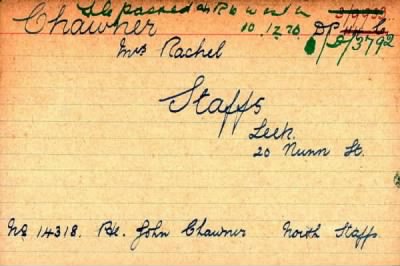 Chawner
10.12.20
D/3792
Mrs Rachel
Staffs
Leek.
20 Nunn St.
No 14318. Pte. John Chawner North Staffs